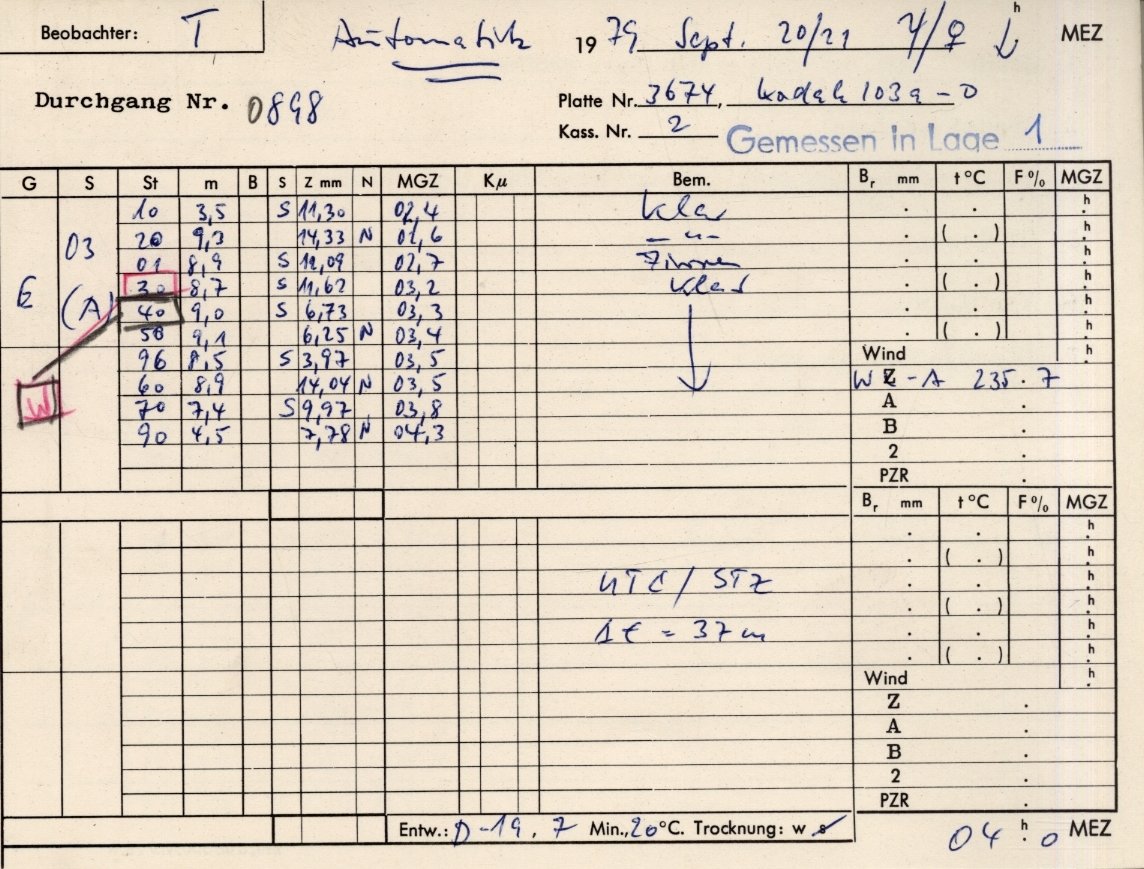 Beobachter: T Automatik 1979 Sept. 20/21 ♃/♀ h MEZ
Durchgang Nr. 0898 Platte Nr. 3674, Kodak 103a-O
Kass. Nr. 2 Gemessen in Lage 1
G S St m B S Z mm N MGZ Kμ Bem. Br mm t °C F % MGZ
10 3,5 S 11,30 02,4 klar . . h
03 20 9,3 14,33 N 02,6 — " — . ( . ) h
01 8,9 S 12,09 02,7 . . h
E (A) 30 8,7 S 11,62 03,2 klar . ( . ) h
40 9,0 S 6,73 03,3 . . h
50 9,1 6,25 N 03,4 . ( . ) h
96 8,5 S 3,97 03,5 Wind h
W 60 8,9 14,04 N 03,5 Z W - A 235.7
70 7,4 S 9,97 03,8 A .
90 4,5 7,78 N 04,3 B .
2 .
PZR .
Br mm t °C F % MGZ
. . h
. ( . ) h
UTC / STZ . . h
. ( . ) h
Δt = 37 m . . h
. ( . ) h
Wind h
Z .
A .
B .
2 .
PZR .
Entw.: D-19, 7 Min., 20 °C. Trocknung: w s 04 h . 0 MEZ